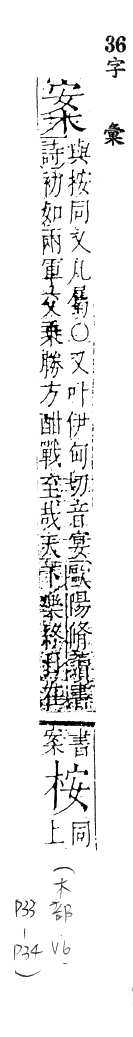 36
字彙
案
與桉同又几屬○又叶伊甸切音宴歐陽脩讀書
詩初如兩軍交乗勝方酣戰至哉天下樂終日在
書
案
桉
同
上
(木部 V6
P33
|
P34)